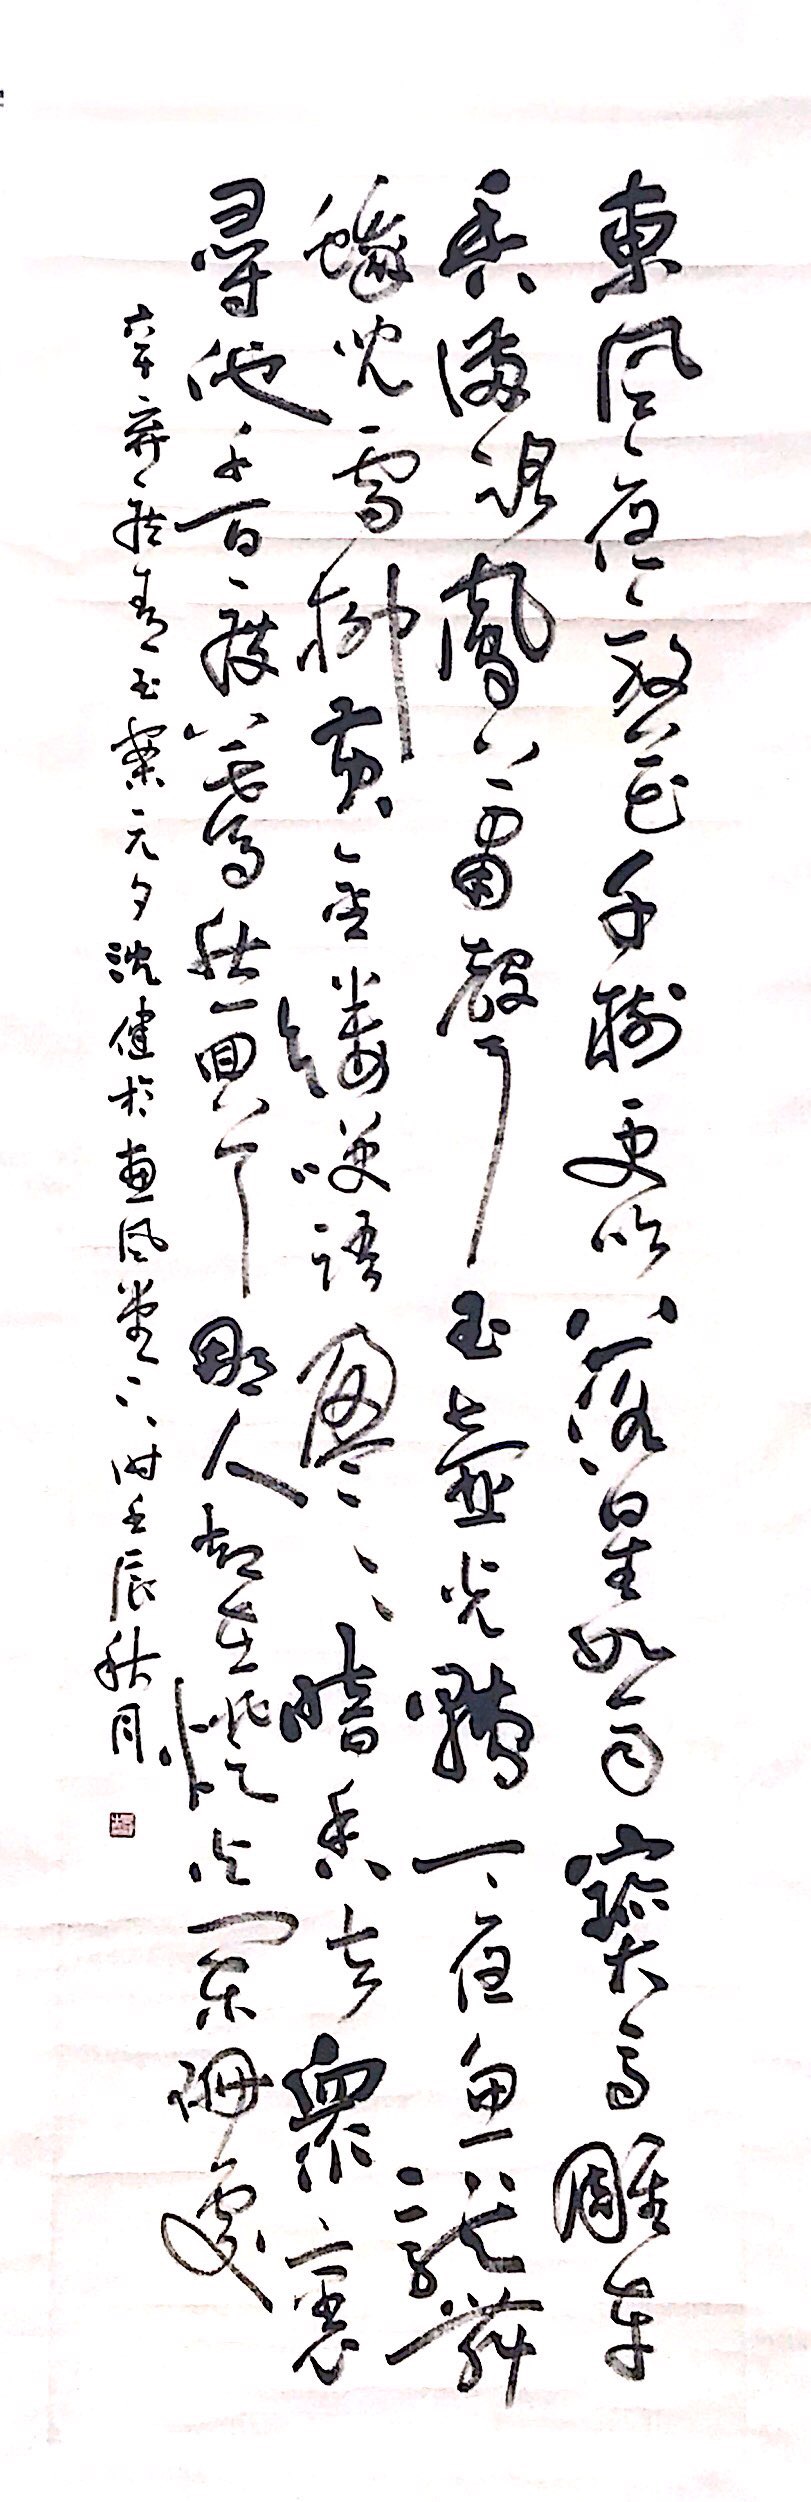 東風夜放花千樹更吹落星如雨寶馬雕車
香滿路鳳簫聲動玉壺光轉一夜魚龍舞
蛾兒雪柳黃金縷笑語盈〻暗香去衆裏
尋他千百度驀然回首那人卻在燈火闌珊處
辛棄疾青玉案元夕沈健於惠風堂時壬辰秋月